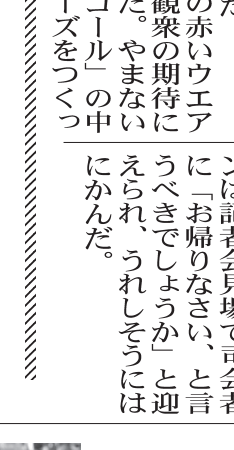 の赤いウエア
観衆の期待に
た。やまない
コール」の中
ーズをつくっ
ンは記者会見場で司会者
に「お帰りなさい、と言
うべきでしょうか」と迎
えられ、うれしそうには
にかんだ。